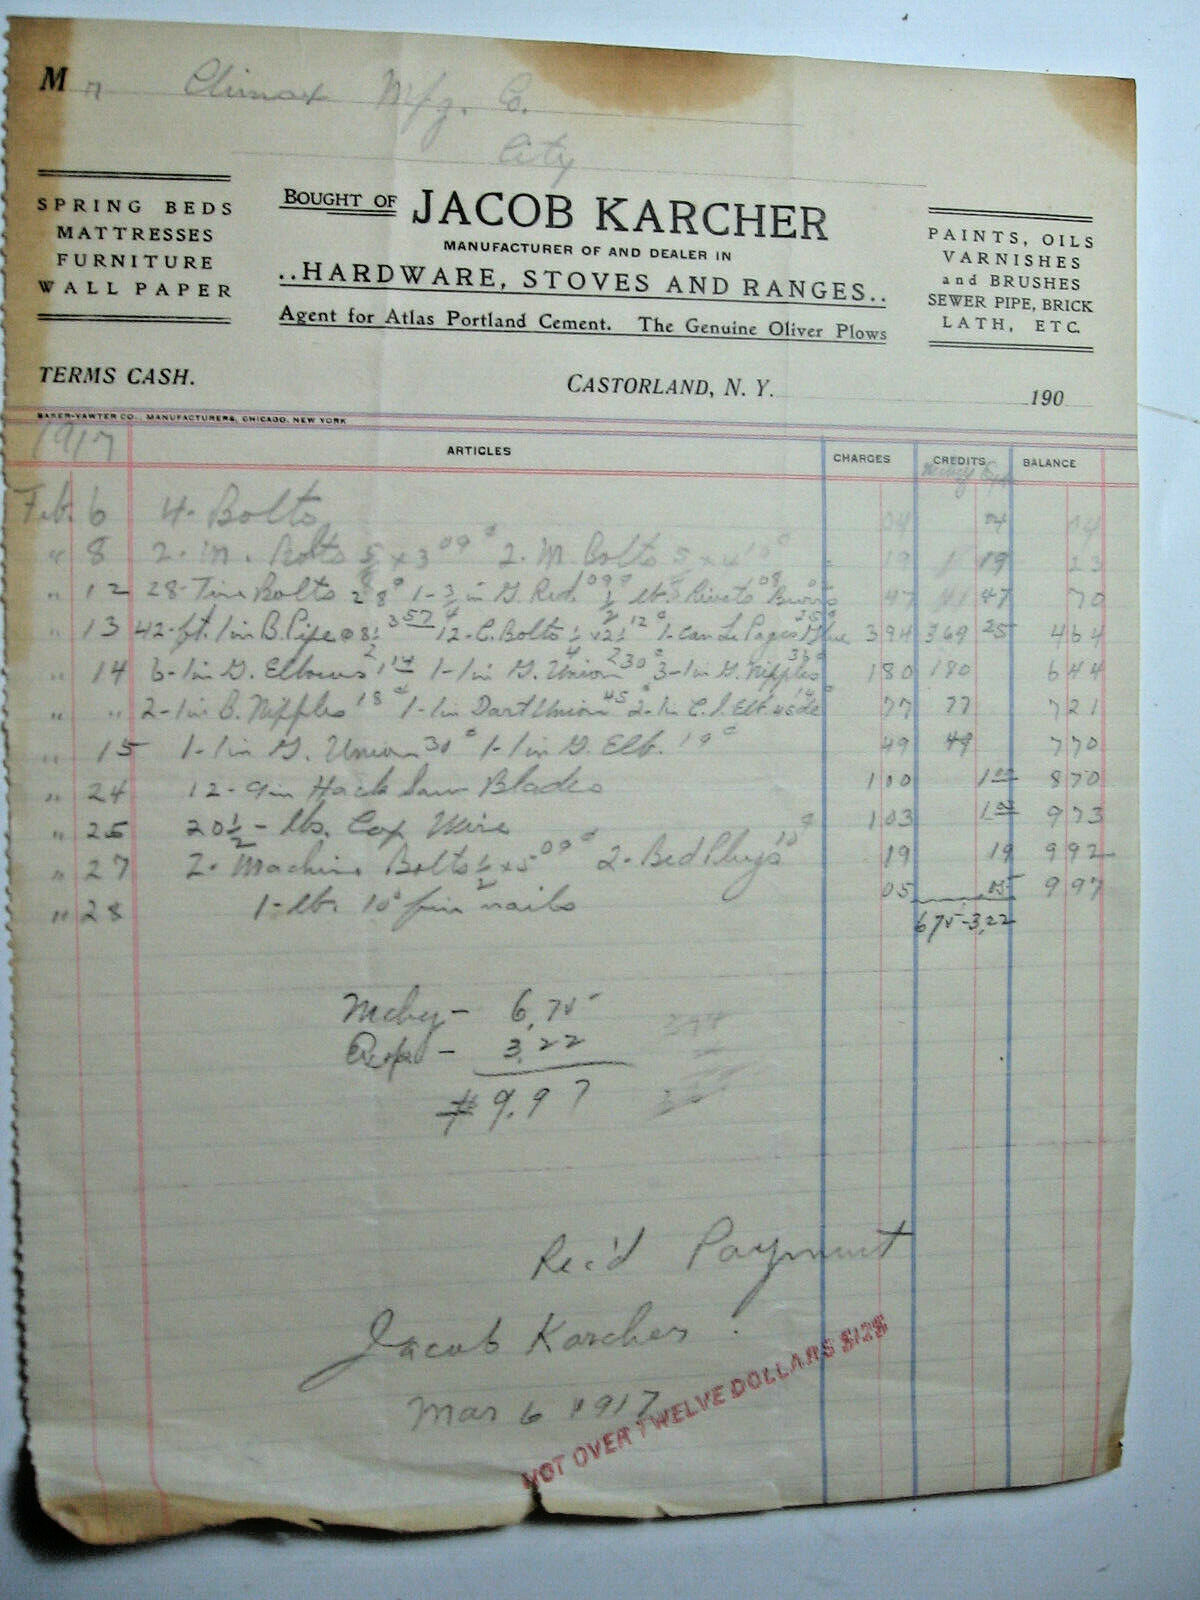 Mr Climax Mfg. Co.
City
SPRING BEDS
MATTRESSES
FURNITURE
WALL PAPER
BOUGHT OF JACOB KARCHER
MANUFACTURER OF AND DEALER IN
..HARDWARE, STOVES AND RANGES..
Agent for Atlas Portland Cement. The Genuine Oliver Plows
PAINTS, OILS
VARNISHES
and BRUSHES
SEWER PIPE, BRICK
LATH, ETC.
TERMS CASH. CASTORLAND, N. Y. 190
BAKER-VAWTER CO., MANUFACTURERS, CHICAGO, NEW YORK
1917 ARTICLES CHARGES CREDITS BALANCE
Mchy Exp
Feb. 6 4- Bolts 04 04 04
" 8 2- M. Bolts 5/8 x 3 09¢ 2- M Bolts 5/8 x 4 10¢ 19 19 23
" 12 28- Tire Bolts 28¢ 1- 3/4 in G. Red. 09¢ 1/2 lb. Rivets 08 47 47 70
" 13 42- ft. 1 in B. Pipe @ 8½ 357 12- C. Bolts ¼ x 2½ 12¢ 1- can Le Pages Glue 394 369 25 464
" 14 6- 1 in G. Elbows 114 1- 1 in G. Union 30¢ 3- 1 in G. Nipples 36¢ 180 180 644
" " 2- 1 in B. Nipples 18¢ 1- 1 in Dart Union 45¢ 2- 1 in C. I. Elb. 14¢ 77 77 721
" 15 1- 1 in G. Union 30¢ 1- 1 in G. Elb. 19¢ 49 49 770
" 24 12- 9 in Hack Saw Blades 100 1 00 870
" 25 20½ - lbs. Cop Wire 103 1 03 973
" 27 2- Machine Bolts ½ x 5 09¢ 2- Bed Plugs 10¢ 19 19 992
" 28 1- lb. 10d fin nails 05 05 997
675 - 3.22
Mchy - 6.75
Exp - 3.22
$ 9.97
Rec'd Payment
Jacob Karcher
Mar 6 1917
NOT OVER TWELVE DOLLARS $12$